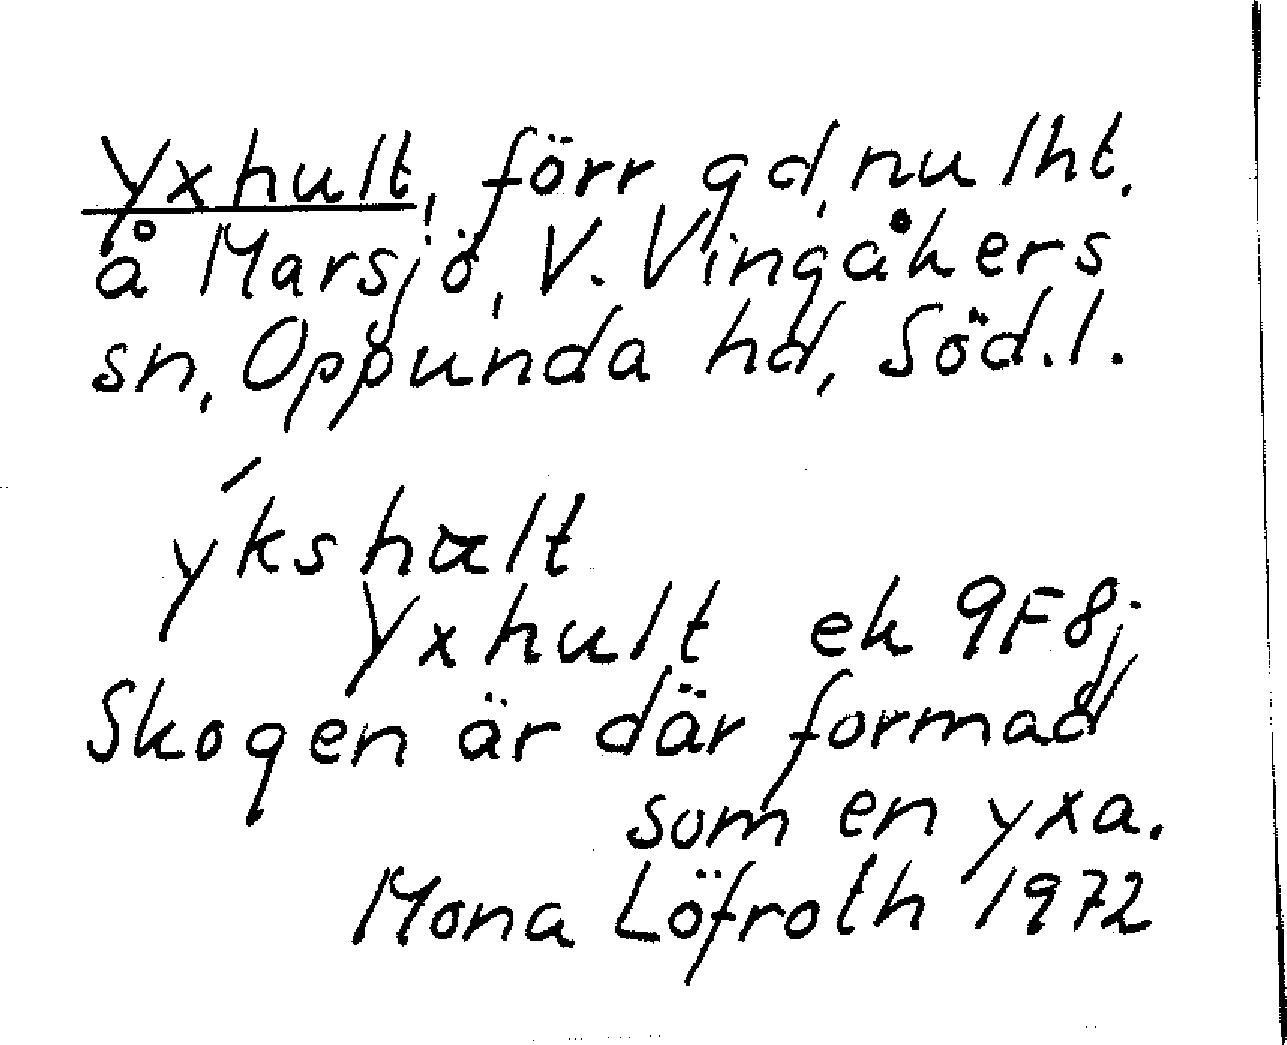 Yxhult, förr gd, nu lht.
å Marsjö, V. Vingåkers
sn, Oppunda hd, Söd.l.
ýkshalt
Yxhult ek 9F8j
Skogen är där formad
som en yxa.
Mona Löfroth 1972